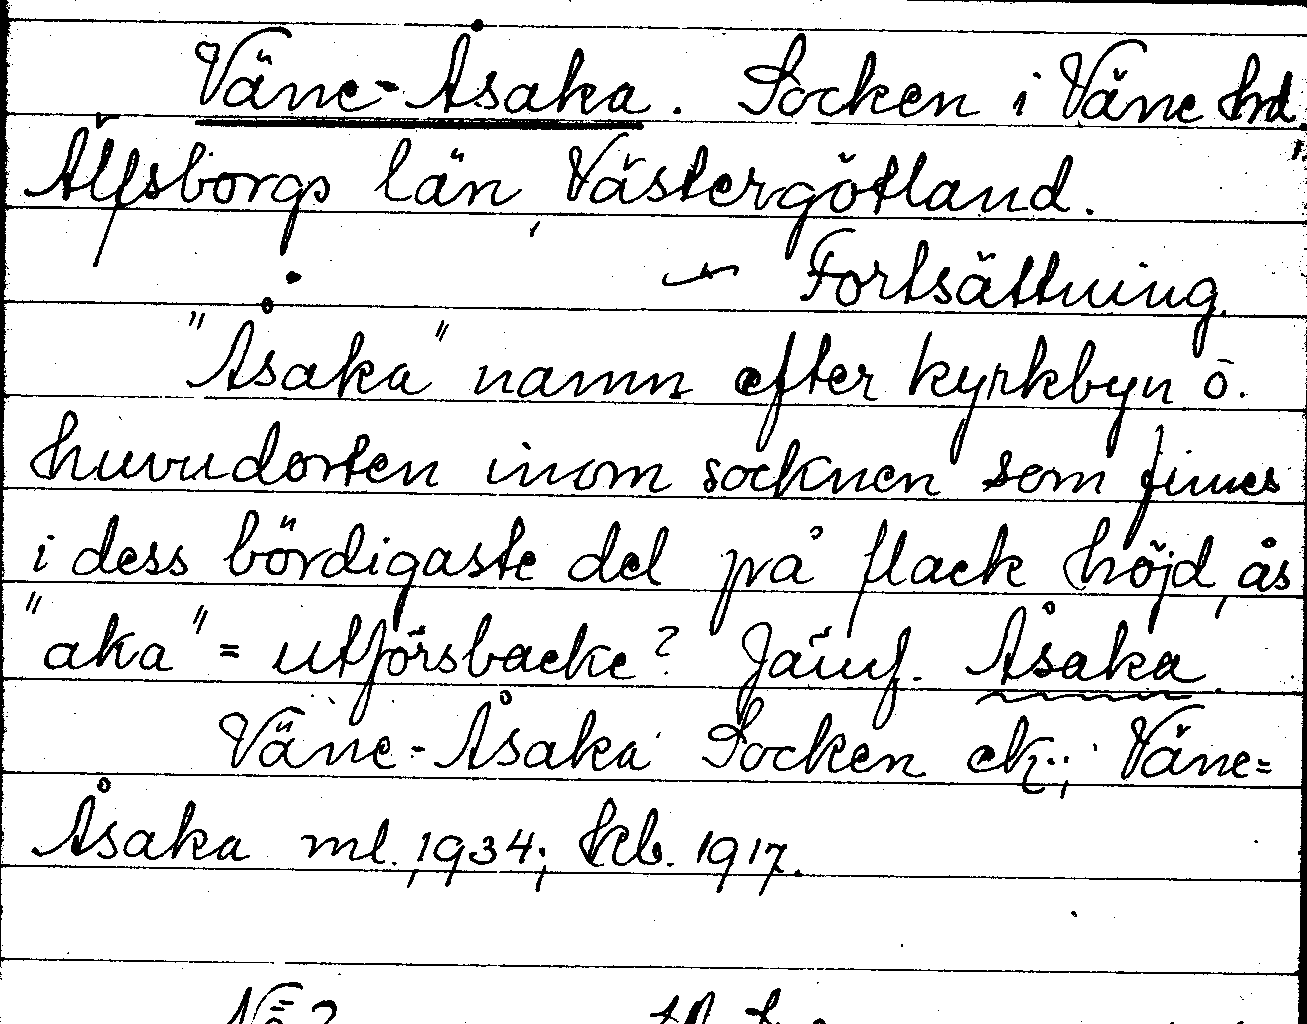 Väne-Åsaka. Socken i Väne hrd.
Älfsborgs län, Västergötland.
Fortsättning.
"Åsaka" namn efter kyrkbyn o.
huvudorten inom socknen som finnes
i dess bördigaste del på flack höjd, ås
"aka" = utförsbacke? Jämf. Åsaka.
Väne-Åsaka Socken ek.; Väne=
Åsaka ml. 1934; kb. 1917.